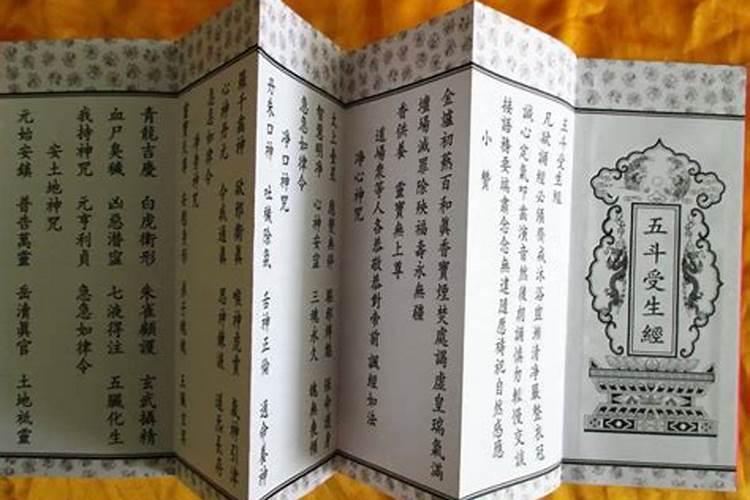 五斗受生經
五斗受生經
凡欲誦經必須齋戒沐浴盥漱清淨嚴整衣冠
誠心定氣叩齒演音然後朗誦慎勿輕慢交談
接語務要端肅念念無違隨應禱祀自然感應
小讚
金爐初爇百和眞香寶煙焚處謁虛皇瑞氣滿
壇場滅罪除殃福壽永無疆
香供養 靈寶無上尊
道場衆等人各恭敬恭對帝前 誦經如法
淨心神咒
太上台星 應變無停 驅邪縛魅 保命護身
智慧明淨 心神安寍 三魂永久 魄無喪傾
急急如律令
淨口神咒
丹朱口神 吐穢除氛 舌神正倫 通命養神
羅千齒神 卻邪衛眞 喉神虎賁 氣神引津
心神丹元 令我通眞 思神鍊液 道炁長存
急急如律令
淨身神咒
靈寶天尊 安慰身形 弟子魂魄 五臟玄冥
青龍吉慶 白虎衛形 朱雀顧護 玄武攝精
血尸臭穢 凶惡潛窪 七液得注 五臟化生
我持神咒 元亨利貞 急急如律令
安土地神咒
元始安鎮 普告萬靈 岳清眞官 土地祗靈